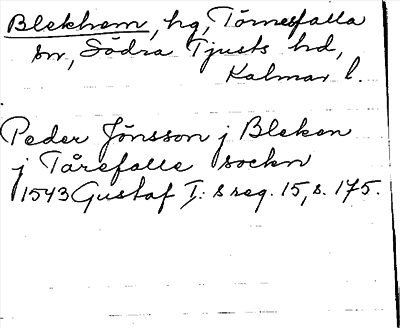 Blekhem, hg, Törnesfalla
sn, Södra Tjusts hd,
Kalmar l.
Peder Jönsson j Bleken
j Tårefalle sockn
1543 Gustaf I: s reg. 15, s. 175.